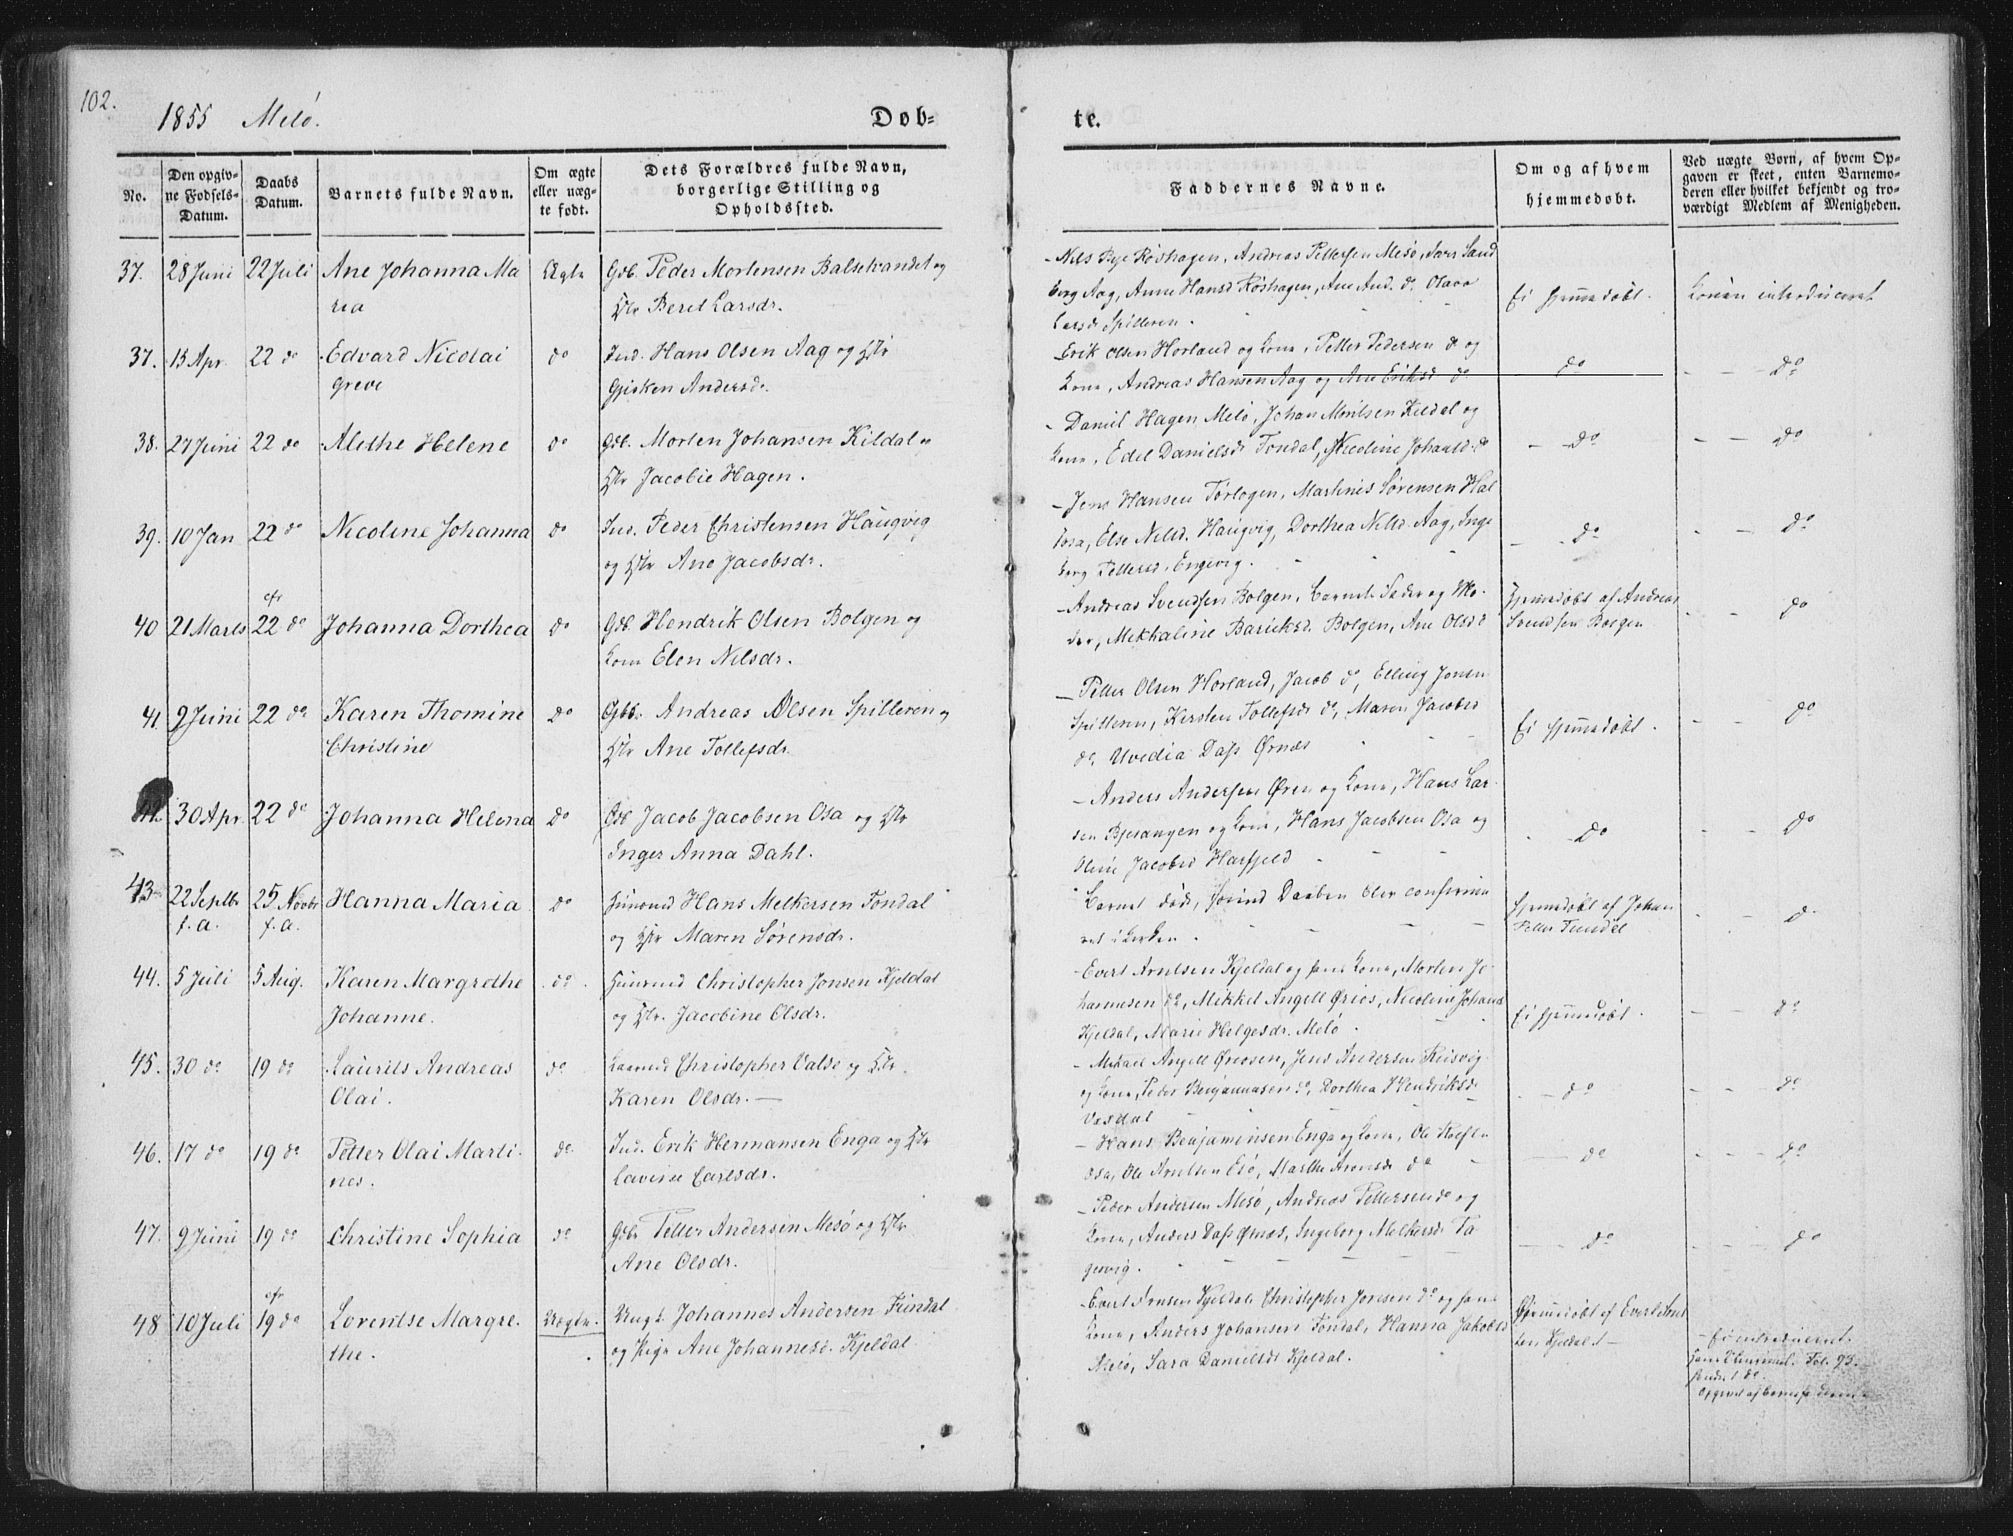 102.
1855 Melø.
Døb-
te.
No.
Den opgiv-
ne Fødsels-
Datum.
Daabs
Datum.
Barnets fulde Navn.
Om ægte
eller uæg-
te født.
Dets Forældres fulde Navn,
borgerlige Stilling og
Opholdssted.
Faddernes Navne.
Om og af hvem
hjemmedøbt.
Ved uægte Børn, af hvem Op-
gaven er skeet, enten Barnemo-
deren eller hvilket bekjendt og tro-
værdigt Medlem af Menigheden.
37. 28 Juni 22 Juli Ane Johanna Ma Ægte Gdb. Peder Mortensen Balsetvandet og
ria Hstr Beret Larsdr.
Nils Røshagen, Andreas Pettersen Mesø,
Aag, Anne Hansd Røshagen, Ane And. do Olava
Larsd Spilderen.
Ei hjemmedøbt. Konen introduceret
37. 15 Apr. 22 do Edvard Nicolai do Ind. Hans Olsen Aag og Hstr
Greve Gjerken Andersd.
Erik Olsen Horland og Kone, Petter Pedersen do og
Kone, Andreas Hansen Aag og Ane Eriksd do
do - - - do
38. 27 Juni 22 do Alethe Helene do Gdb. Morten Johansen Kildal og
Hstr Jacobie Hagen.
- Daniel Hagen Melø, Johan Kildal og
Kone, Edel Danielsd Fondal, Nicoline Johansd. do
- do - - do
39. 10 Jan 22 do Nicoline Johanna do Ind. Peder Christensen Haugvig
og Hstr Ane Jacobsdr.
- Jens Hansen Torlogen, Martinis Sørensen Hal
Osa, Else Nilsd. Haugvig, Dorthea Nilsd. Aag, Inge
borg Pettersd. Engevig.
- - do - - do
40 21 Marts cfr 22 do Johanna Dorthea do Gdb. Hendrik Olsen Bolgen og
Kone Elen Nilsdr.
- Andreas Svendsen Bolgen, Barnets Fader og Mo-
der, Mekhaline Bolgen, Ane Olsd do
Hjemmedøbt af Andreas
Svendsen Bolgen
- - do
41. 9 Juni 22 do Karen Thomine do Gbbr Andreas Olsen Spilderen og
Christine Hstr Ane Tollefsdr.
- Petter Olsen Horland, Jacob do, Elling Jonsen
Spilderen, Kirsten Tollefsdr do, Maren Jacobsd
do, Uvedia Dass Ørnæs
Ei hjemmedøbt. - - do
42. 30 Apr. 22 do Johanna Helena do Gdb Jacob Jacobsen Osa og Hstr
Inger Anna Dahl.
- Anders Andersen Øren og Kone, Hans Lar-
sen Bjerangen og Kone, Hans Jacobsen Osa og
Oline Jacobsd Harfjeld
- do - - do
43 22 Septbr 25 Novbr Hanna Maria do Huusmd Hans Melkersen Fondal
f.a. f.a. og Hstr Maren Sørensdr.
Barnet død, førend Daaben blev confirme
ret i Kirken.
Hjemmedøbt af Johan
Petter Fundal
- - do
44. 5 Juli 5 Aug. Karen Margrethe do. Huusmd Christopher Jonsen Kjeldal
Johanne. og Hstr. Jacobine Olsdr.
- Evert Arntsen Kjeldal og hans Kone, Morten Jo-
hannesen do, Mikkel Angell Ørios, Nicoline Johansd
Kjeldal, Marie Helgesdr. Melø.
Ei hjemmedøbt. - - do
45. 30 do 19 do Laurits Andreas do Christopher Valde og Hstr.
Olai. Karen Olsdr. —
- Mikael Angell Øreosen, Jens Andersen Reisvig
og Kone, Peder Benjaminsen do, Dorthea Hendriksd
Vasdal
- - do - - do
46. 17 do 19 do Petter Olai Marti- do Ind. Erik Hermansen Enga og Hstr
nes. Lavine Carlsdr.
- Hans Benjaminsen Enga og Kone, Ole
Osa, Ole Arntsen Esø, Marthe Aronsd do
- do - - do
47. 9 Juni 19 do Christine Sophia do Gdbr Petter Andersen Mesø og Hstr
Ane Olsdr.
- Peder Andersen Mesø, Andreas Pettersen do og
Kone, Anders Dass Ørnæs, Ingeborg Melkersd
- - do - - do
48 10 Juli cfr 19 do Lorentse Margre- Uægte. Ungk. Johannes Andersen Fundal
the. og Pige Ane Johannesd. Kjeldal.
- Evert Arntsen Kjeldal, Christopher Jonsen do og hans
Kone, Anders Johansen Fondal, Hanna Jakobsd
Melø, Sara Danielsd Kjeldal.
Hjemmedøbt af Evert Arnt
sen Kjeldal. -
- Ei introduceret.
Fol. 93.
Opgivet af Barnefaderen